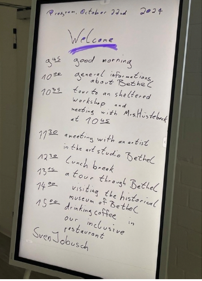 Program October 22nd 2024
Welcome
9:45 good morning
10:00 general informations
about Bethel
10:20 tour to an sheltered
workshop and
meeting with Mrs Hustebeck
at 10:45
11:30 meeting with an artist
in the art studio Bethel
12:30 lunch break
13:30 a tour through Bethel
14:00 visiting the historical
museum of Bethel
15:00 drinking coffee in
our inclusive
restaurant
Sven Jobusch